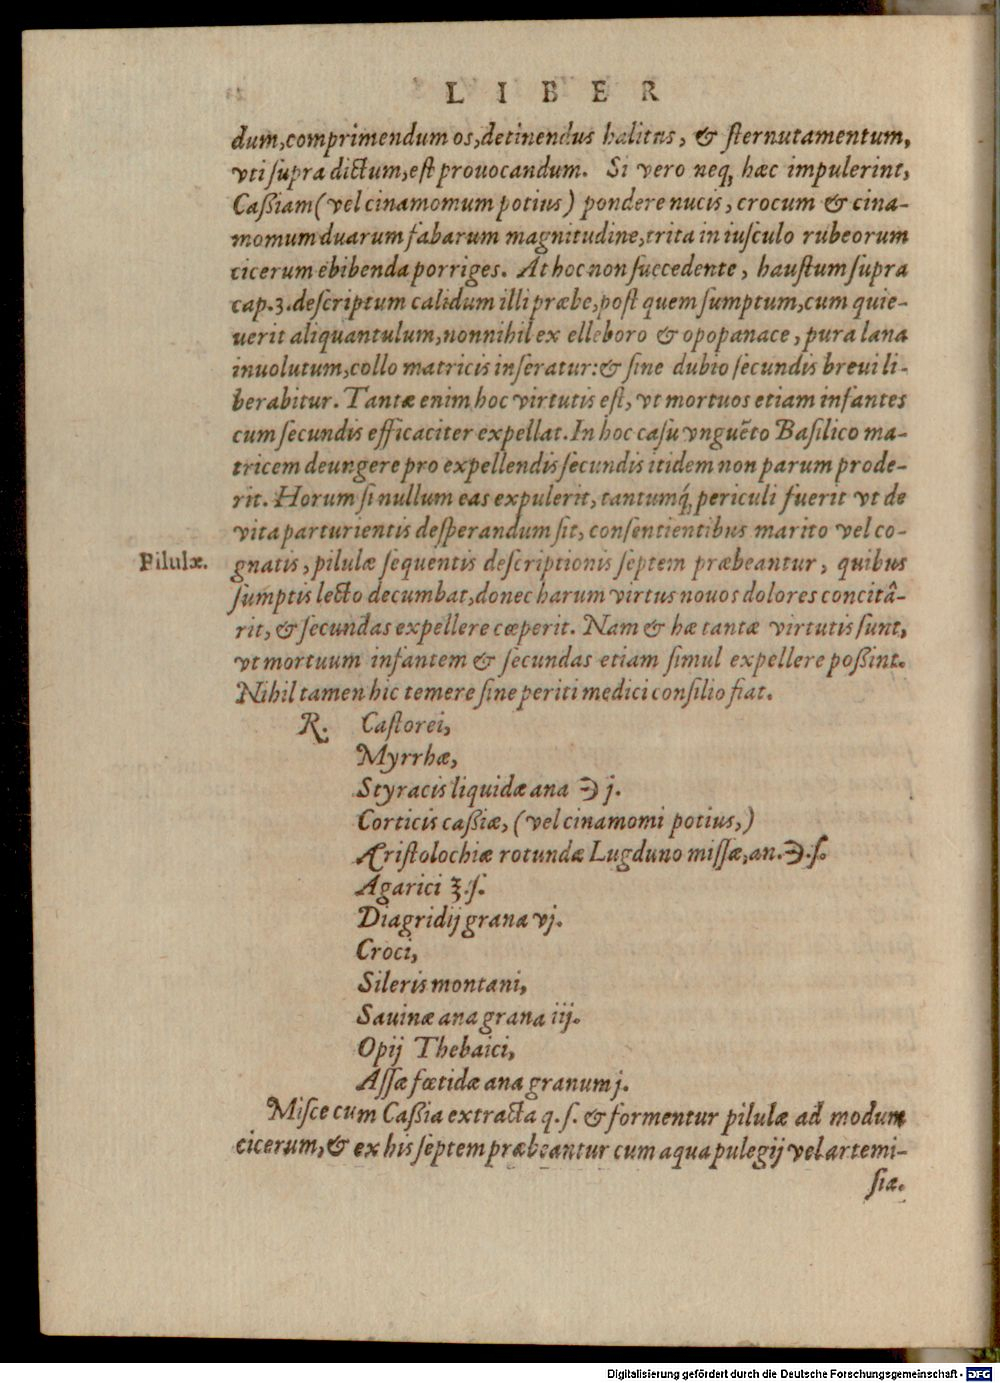 LIBER
dum, comprimendum os, detinendus halitus, & ſternutamentum,
vti ſupra dictum, eſt prouocandum. Si vero neq́ hæc impulerint,
Caßiam (vel cinamomum potius) pondere nucis, crocum & cina-
momum duarum fabarum magnitudine, trita in iuſculo rubeorum
cicerum ebibenda porriges. At hoc non ſuccedente, hauſtum ſupra
cap.3. deſcriptum calidum illi præbe, poſt quem ſumptum, cum quie-
uerit aliquantulum, nonnihil ex elleboro & opopanace, pura lana
inuolutum, collo matricis inſeratur: & ſine dubio ſecundis breui li-
berabitur. Tantæ enim hoc virtutis eſt, vt mortuos etiam infantes
cum ſecundis efficaciter expellat. In hoc caſu vnguẽto Baſilico ma-
tricem deungere pro expellendis ſecundis itidem non parum prode-
rit. Horum ſi nullum eas expulerit, tantumq́ periculi fuerit vt de
vita parturientis deſperandum ſit, conſentientibus marito vel co-
Pilulæ.
gnatis, pilulæ ſequentis deſcriptionis ſeptem præbeantur, quibus
ſumptis lecto decumbat, donec harum virtus nouos dolores concitâ-
rit, & ſecundas expellere cœperit. Nam & hæ tantæ virtutis ſunt,
vt mortuum infantem & ſecundas etiam ſimul expellere poßint.
Nihil tamen hic temere ſine periti medici conſilio fiat.
R. Caſtorei,
Myrrhæ,
Styracis liquidæ ana ℈ j.
Corticis caßiæ, (vel cinamomi potius,)
Ariſtolochiæ rotundæ Lugduno miſſæ, an. ℈.ſ.
Agarici ʒ.ſ.
Diagridij grana vj.
Croci,
Sileris montani,
Sauinæ ana grana iij.
Opij Thebaici,
Aſſæ fœtidæ ana granum j.
Miſce cum Caßia extracta q.ſ. & formentur pilulæ ad modum
cicerum, & ex his ſeptem præbeantur cum aqua pulegij vel artemi-
ſiæ.
Digitalisierung gefördert durch die Deutsche Forschungsgemeinschaft - DFG